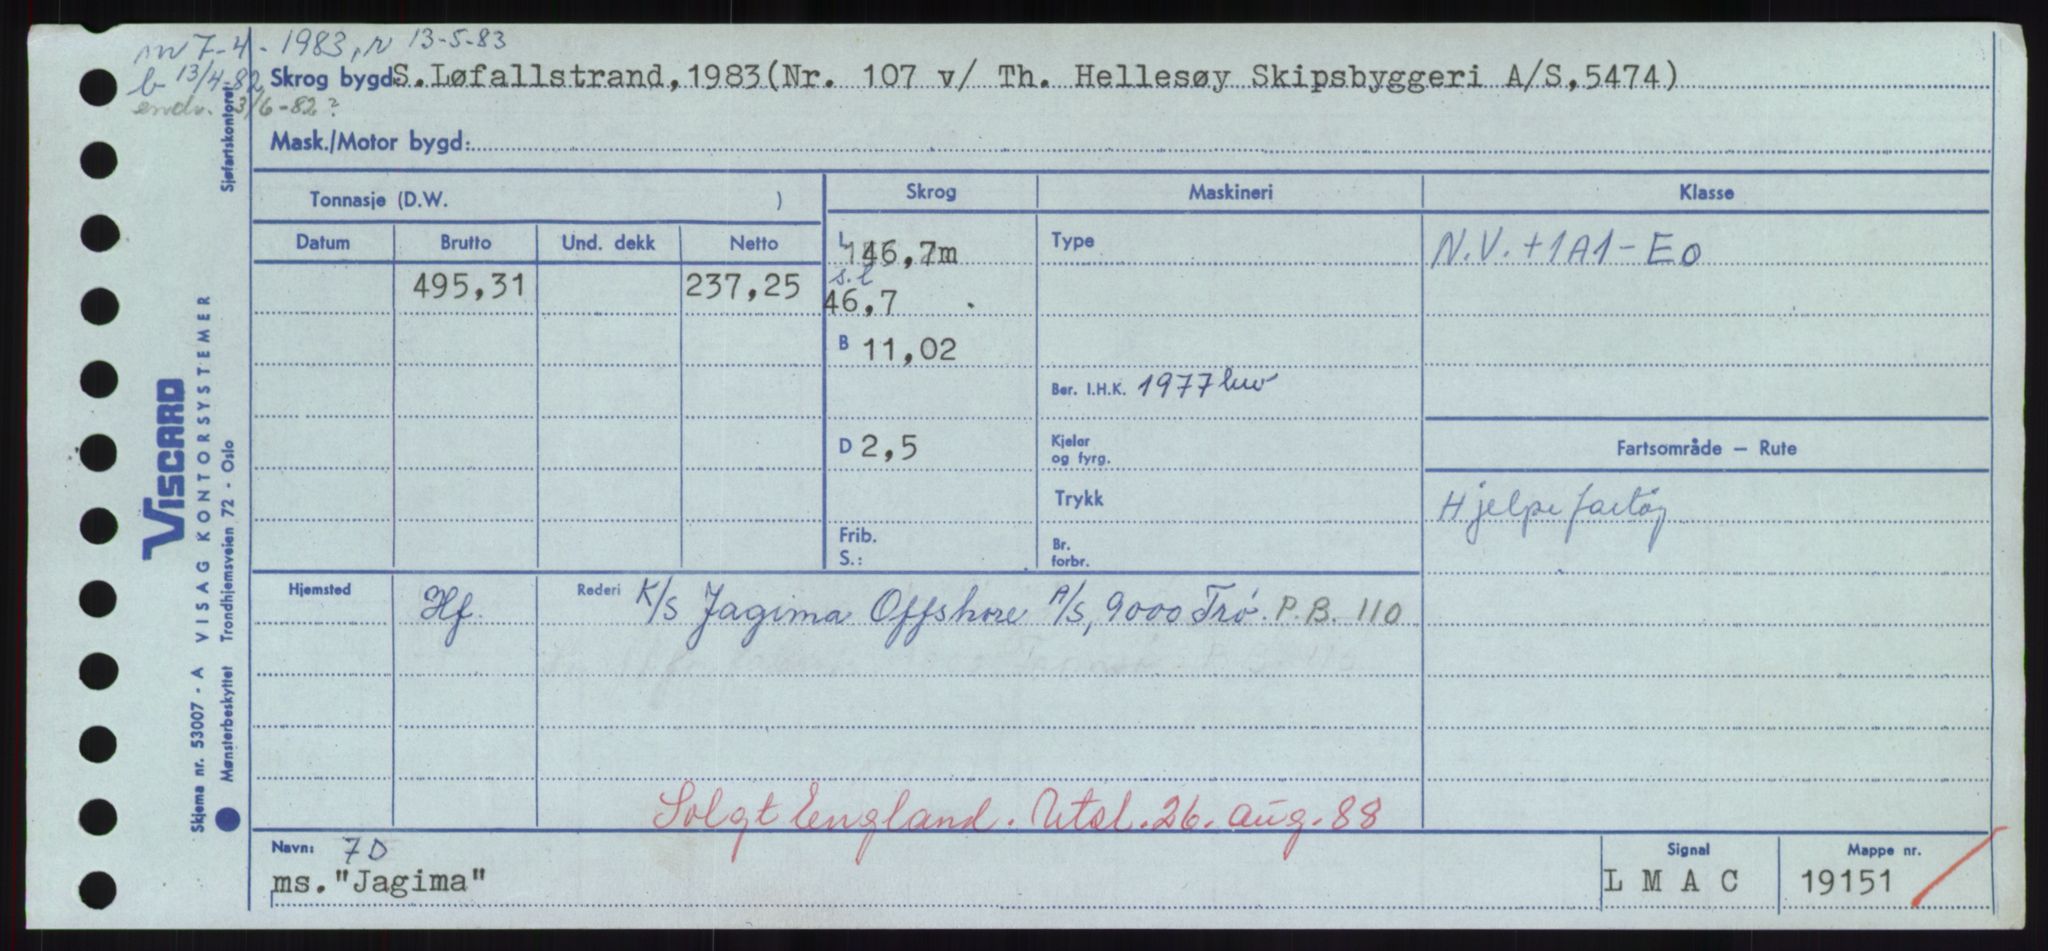 7-4-1983, r 13-5-83
b 13/4-82
endr. 3/6-82?
Skrog bygd S.Løfallstrand,1983(Nr. 107 v/ Th. Hellesøy Skipsbyggeri A/S,5474)
Mask./Motor bygd:
Tonnasje (D.W. ) Skrog Maskineri Klasse
Datum Brutto Und. dekk Netto L 46,7m Type N.V. +1A1-EO
495,31 237,25 s.l
46,7
B 11,02
Ber. I.H.K. 1977
D 2,5 Kjeler og fyrg. Fartsområde — Rute
Trykk Hjelpefartøy
Frib. Br.
S.: forbr.
Hjemsted Hf. Rederi K/S Jagima Offshore A/S, 9000 Trø. P.B. 110
Solgt England. Utsl. 26. aug. 88
Navn: 7D Signal Mappe nr.
ms."Jagima" L M A C 19151
VISCARD
VISAG KONTORSYSTEMER
Trondhjemsveien 72 - Oslo
Sjøfartskontoret
Skjema nr. 53007 - A
Mønsterbeskyttet